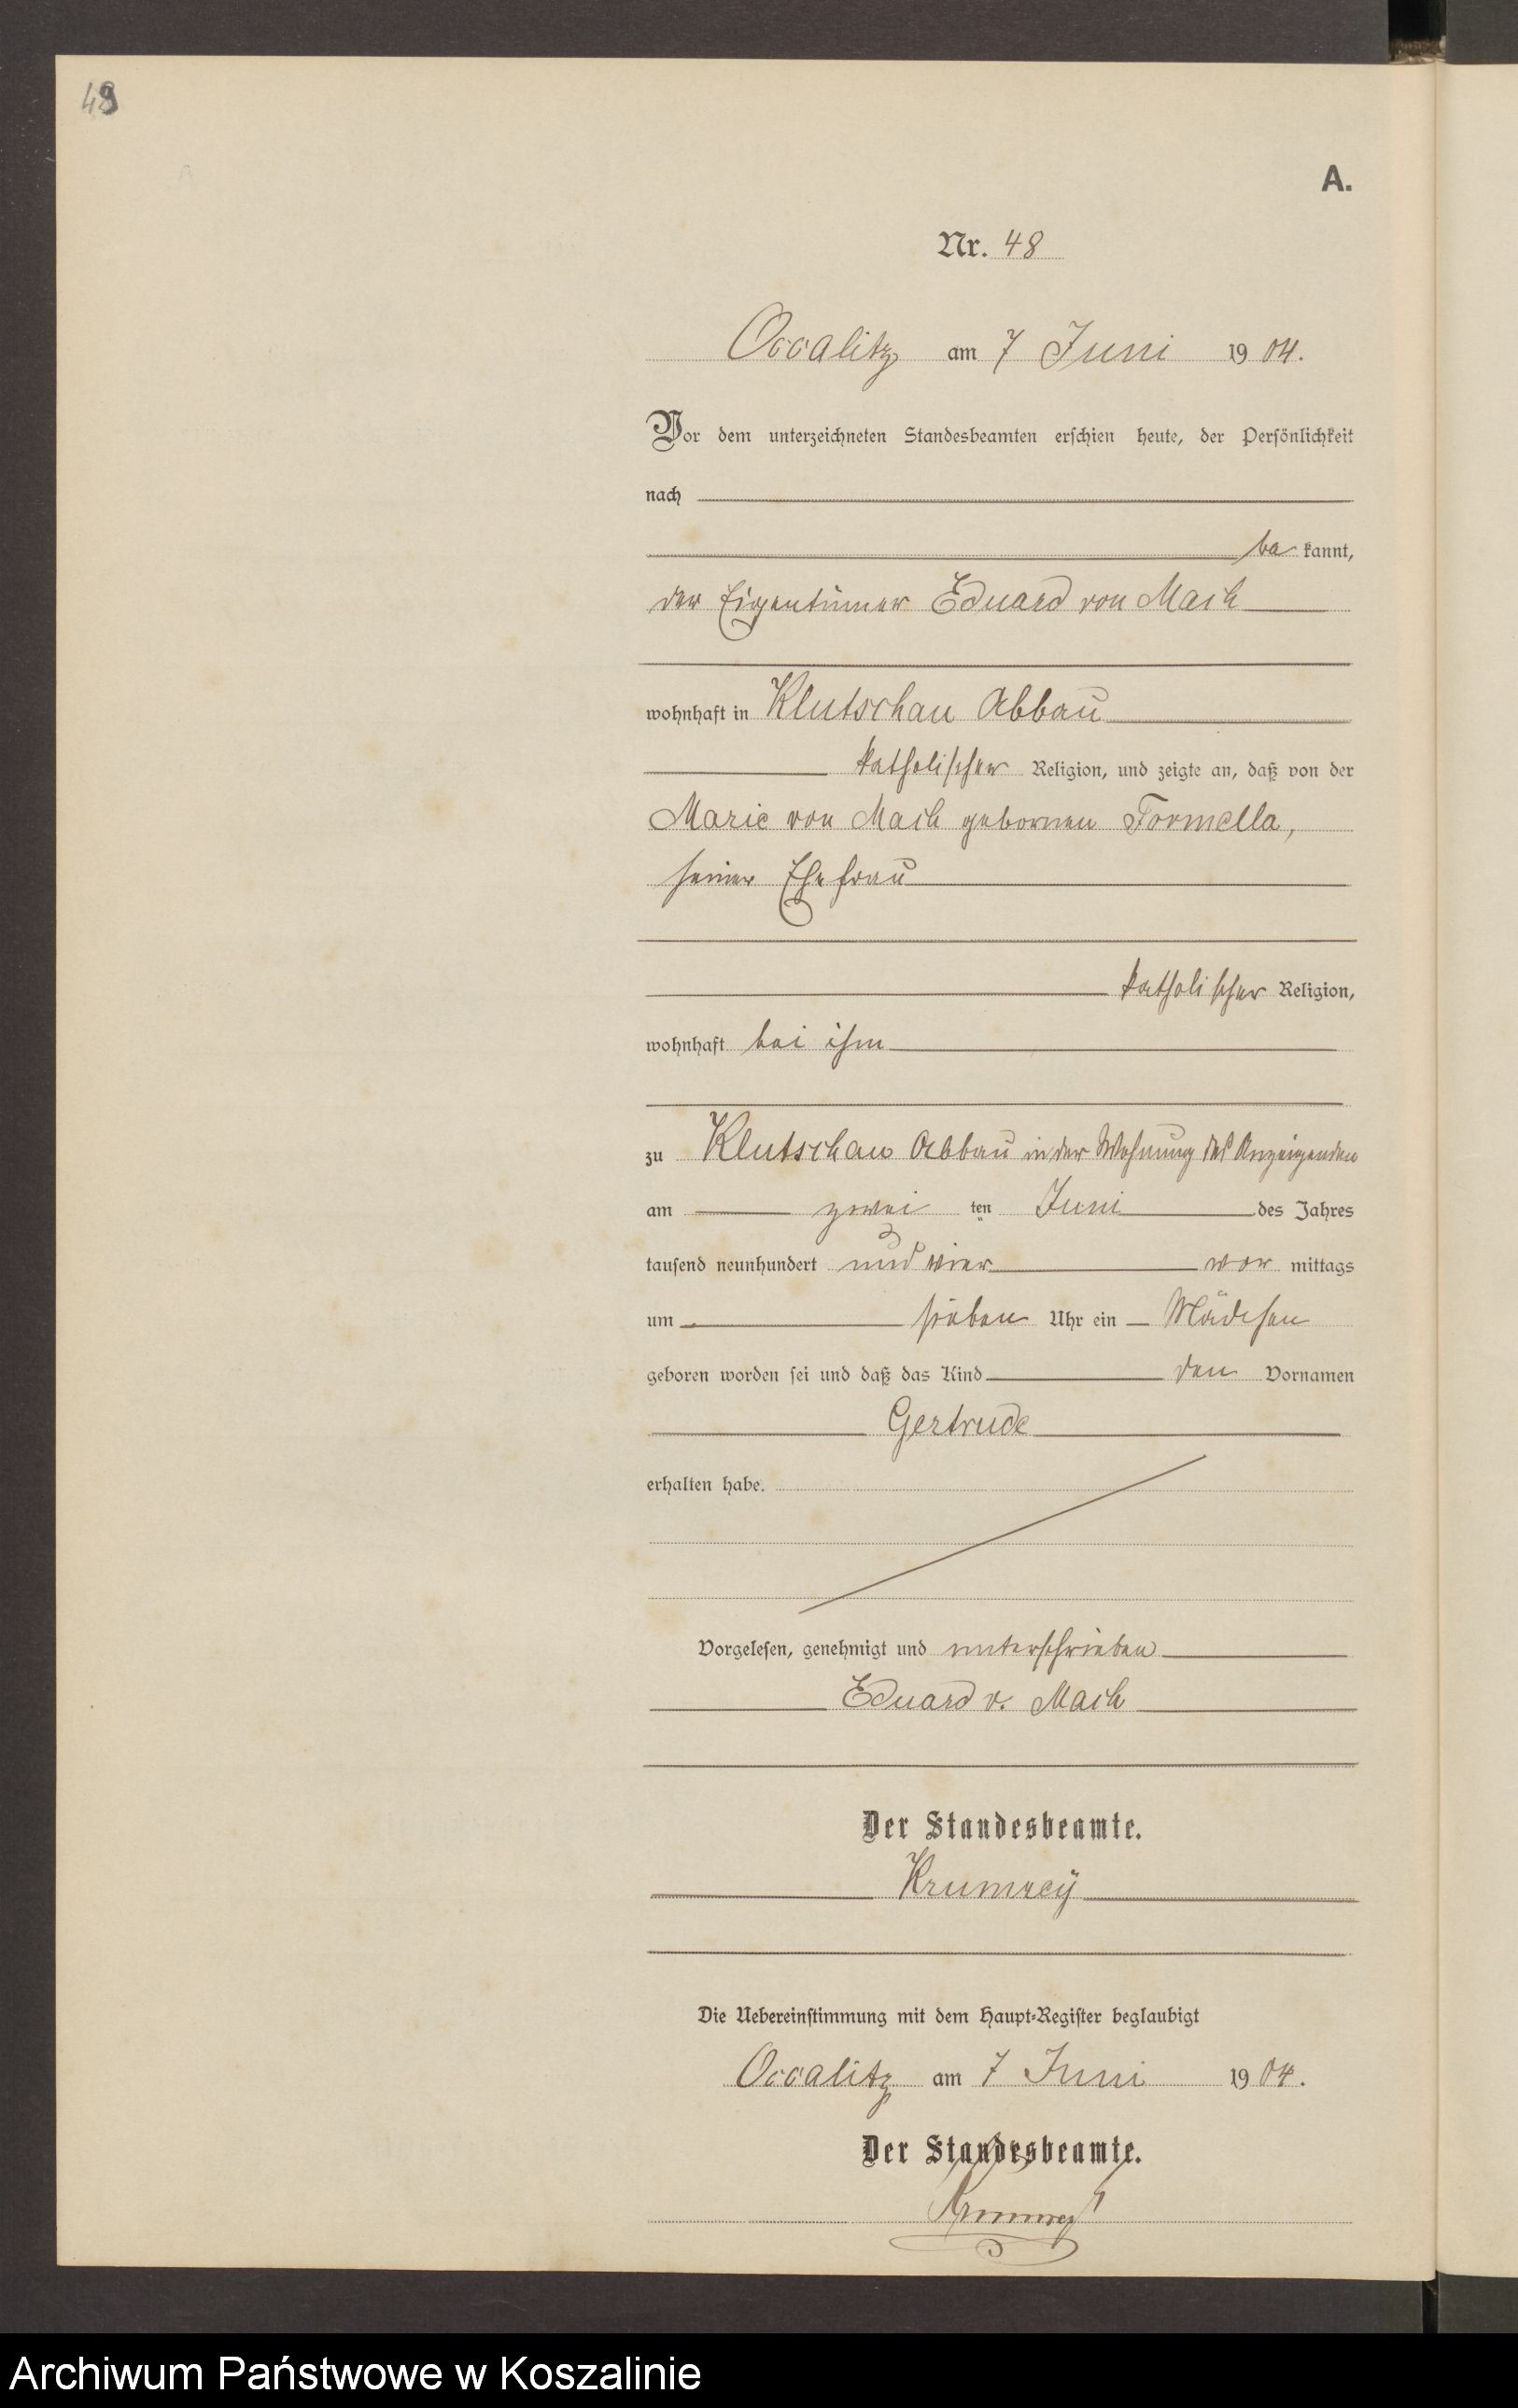 49
A.
Nr. 48
Occalitz am 7 Juni 1904.
Vor dem unterzeichneten Standesbeamten erschien heute, der Persönlichkeit
nach
be kannt,
der Eigentümer Eduard von Mach
wohnhaft in Klutschau Abbau
katholischer Religion, und zeigte an, daß von der
Marie von Mach gebornen Formella,
seiner Ehefrau
katholischer Religion,
wohnhaft bei ihm
zu Klutschau Abbau in der Wohnung des Anzeigenden
am zwei ten Juni des Jahres
tausend neunhundert und vier vor mittags
um sieben Uhr ein Mädchen
geboren worden sei und daß das Kind den Vornamen
Gertrude
erhalten habe.
Vorgelesen, genehmigt und unterschrieben
Eduard v. Mach
Der Standesbeamte.
Krumrey
Die Uebereinstimmung mit dem Haupt-Register beglaubigt
Occalitz am 7 Juni 1904.
Der Standesbeamte.
Krumrey
Archiwum Państwowe w Koszalinie